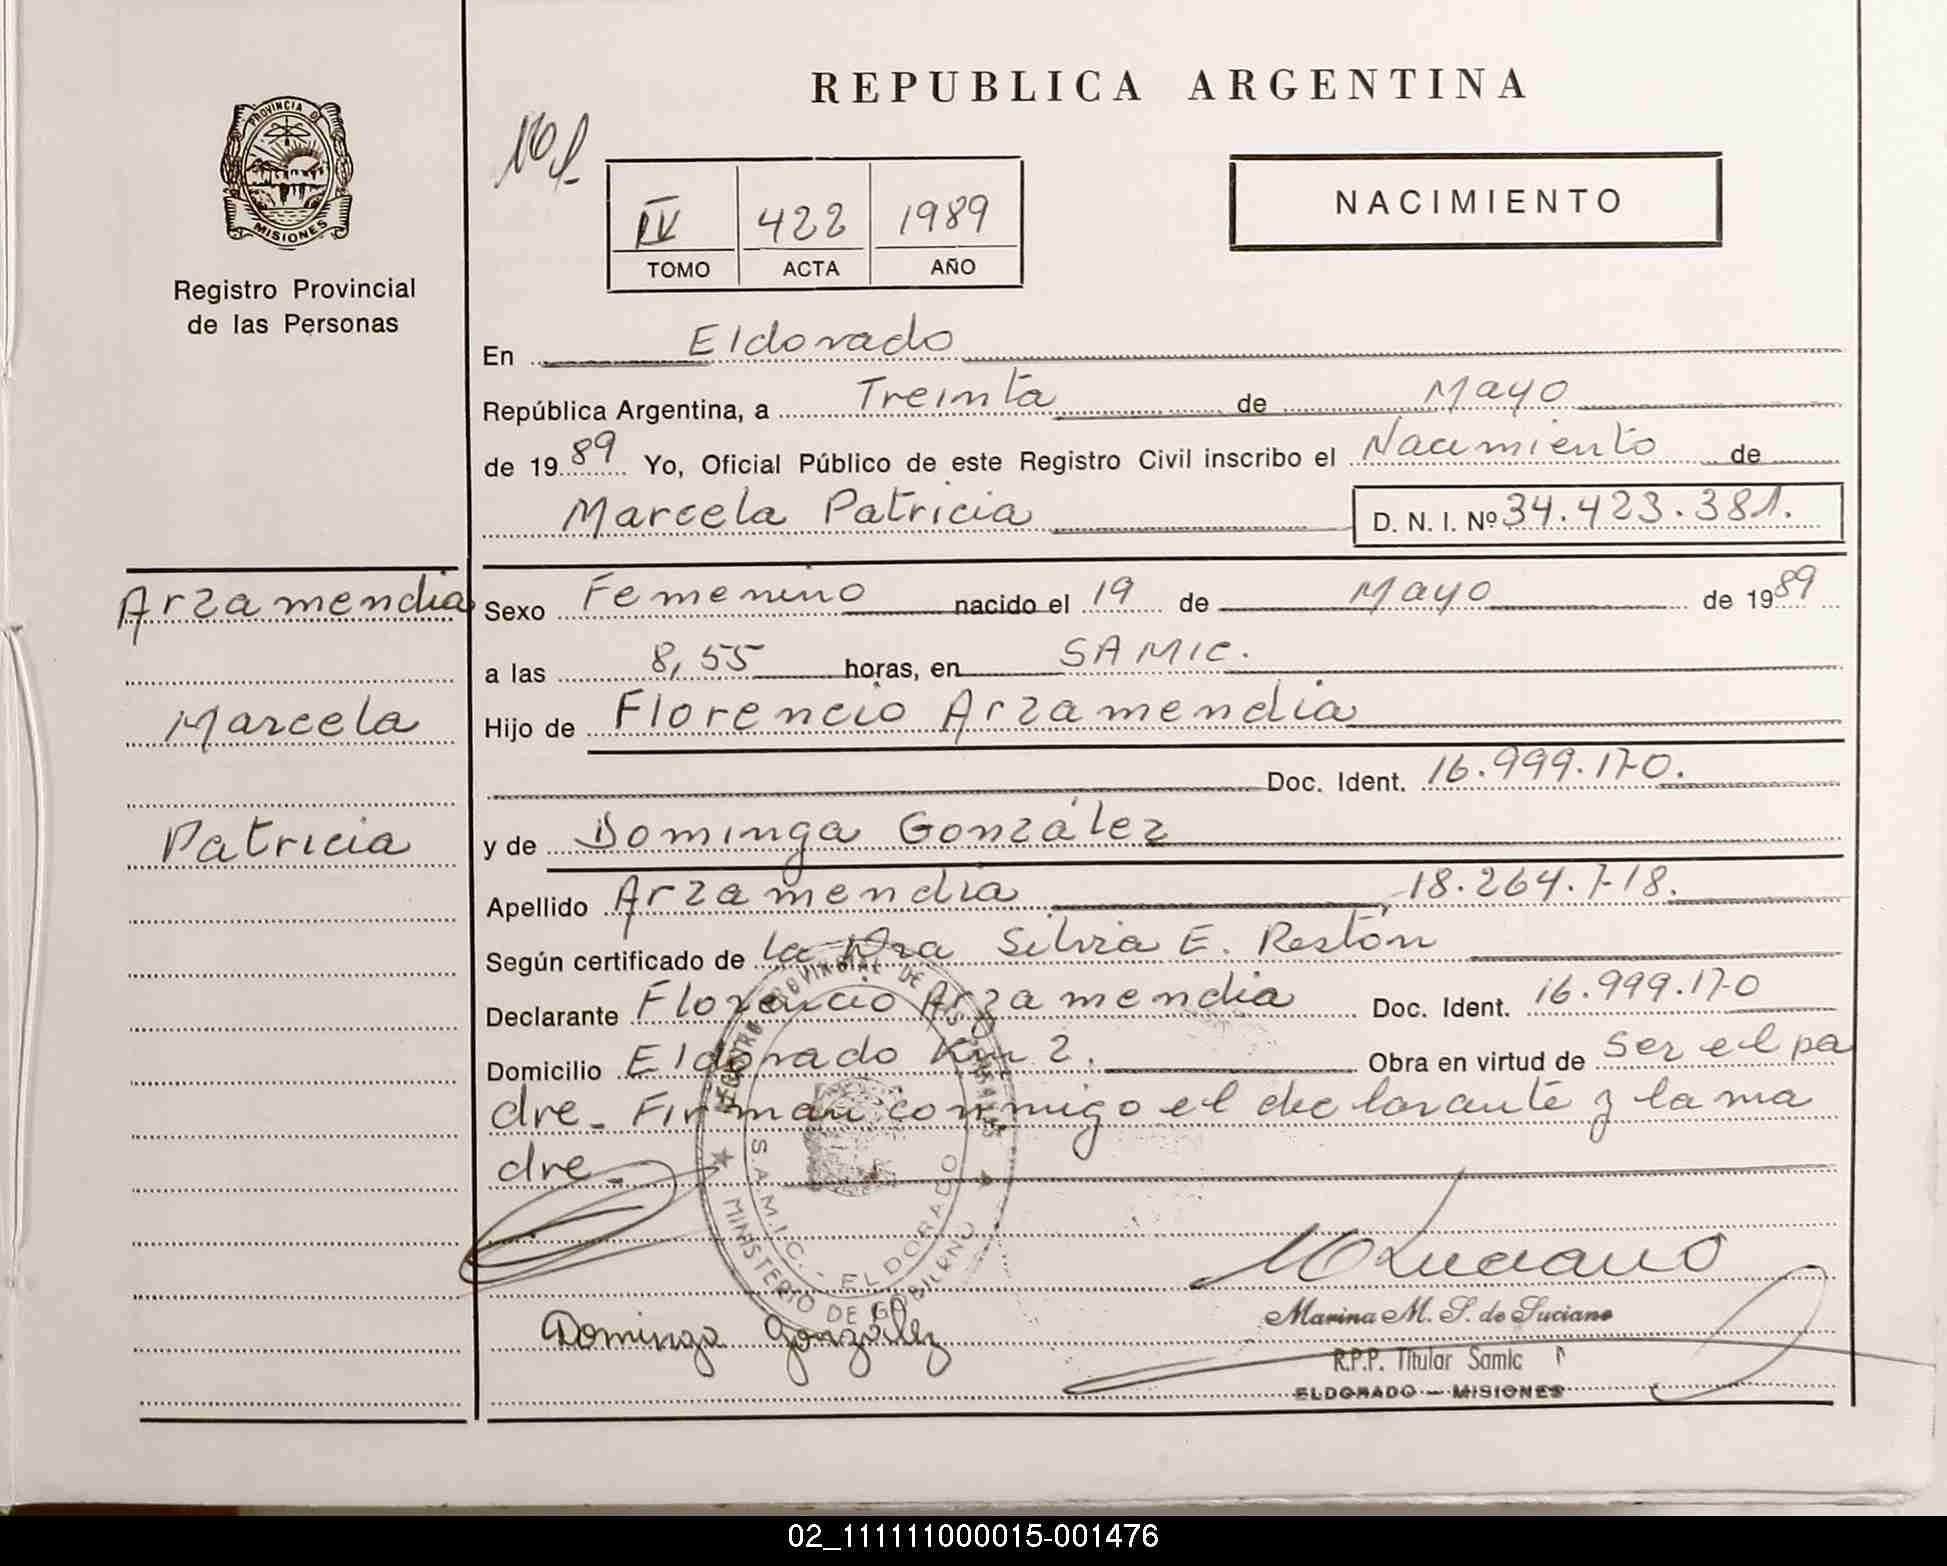 REPUBLICA ARGENTINA
PROVINCIA DE
MISIONES
Registro Provincial
de las Personas
IV 422 1989
TOMO ACTA AÑO
NACIMIENTO
En Eldorado
República Argentina, a Treinta de Mayo
de 1989 Yo, Oficial Público de este Registro Civil inscribo el Nacimiento de
Marcela Patricia D. N. I. Nº 34.423.381.
Arzamendia
Marcela
Patricia
Sexo Femenino nacido el 19 de Mayo de 1989
a las 8,55 horas, en SAMIC.
Hijo de Florencio Arzamendia
Doc. Ident. 16.999.170.
y de Dominga González
Apellido Arzamendia 18.264.718.
Según certificado de la Dra Silvia E. Restón
Declarante Florencio Arzamendia Doc. Ident. 16.999.170
Domicilio Eldorado Km 2. Obra en virtud de Ser el pa
dre_ Firman conmigo el declarante y la ma
dre_
REGISTRO PROVINCIAL DE LAS PERSONAS
S.A.M.I.C. - ELDORADO
MINISTERIO DE GOBIERNO
Luciano
Dominga González
Marina M. S. de Luciano
R.P.P. Titular Samic
ELDORADO — MISIONES
02_111111000015-001476